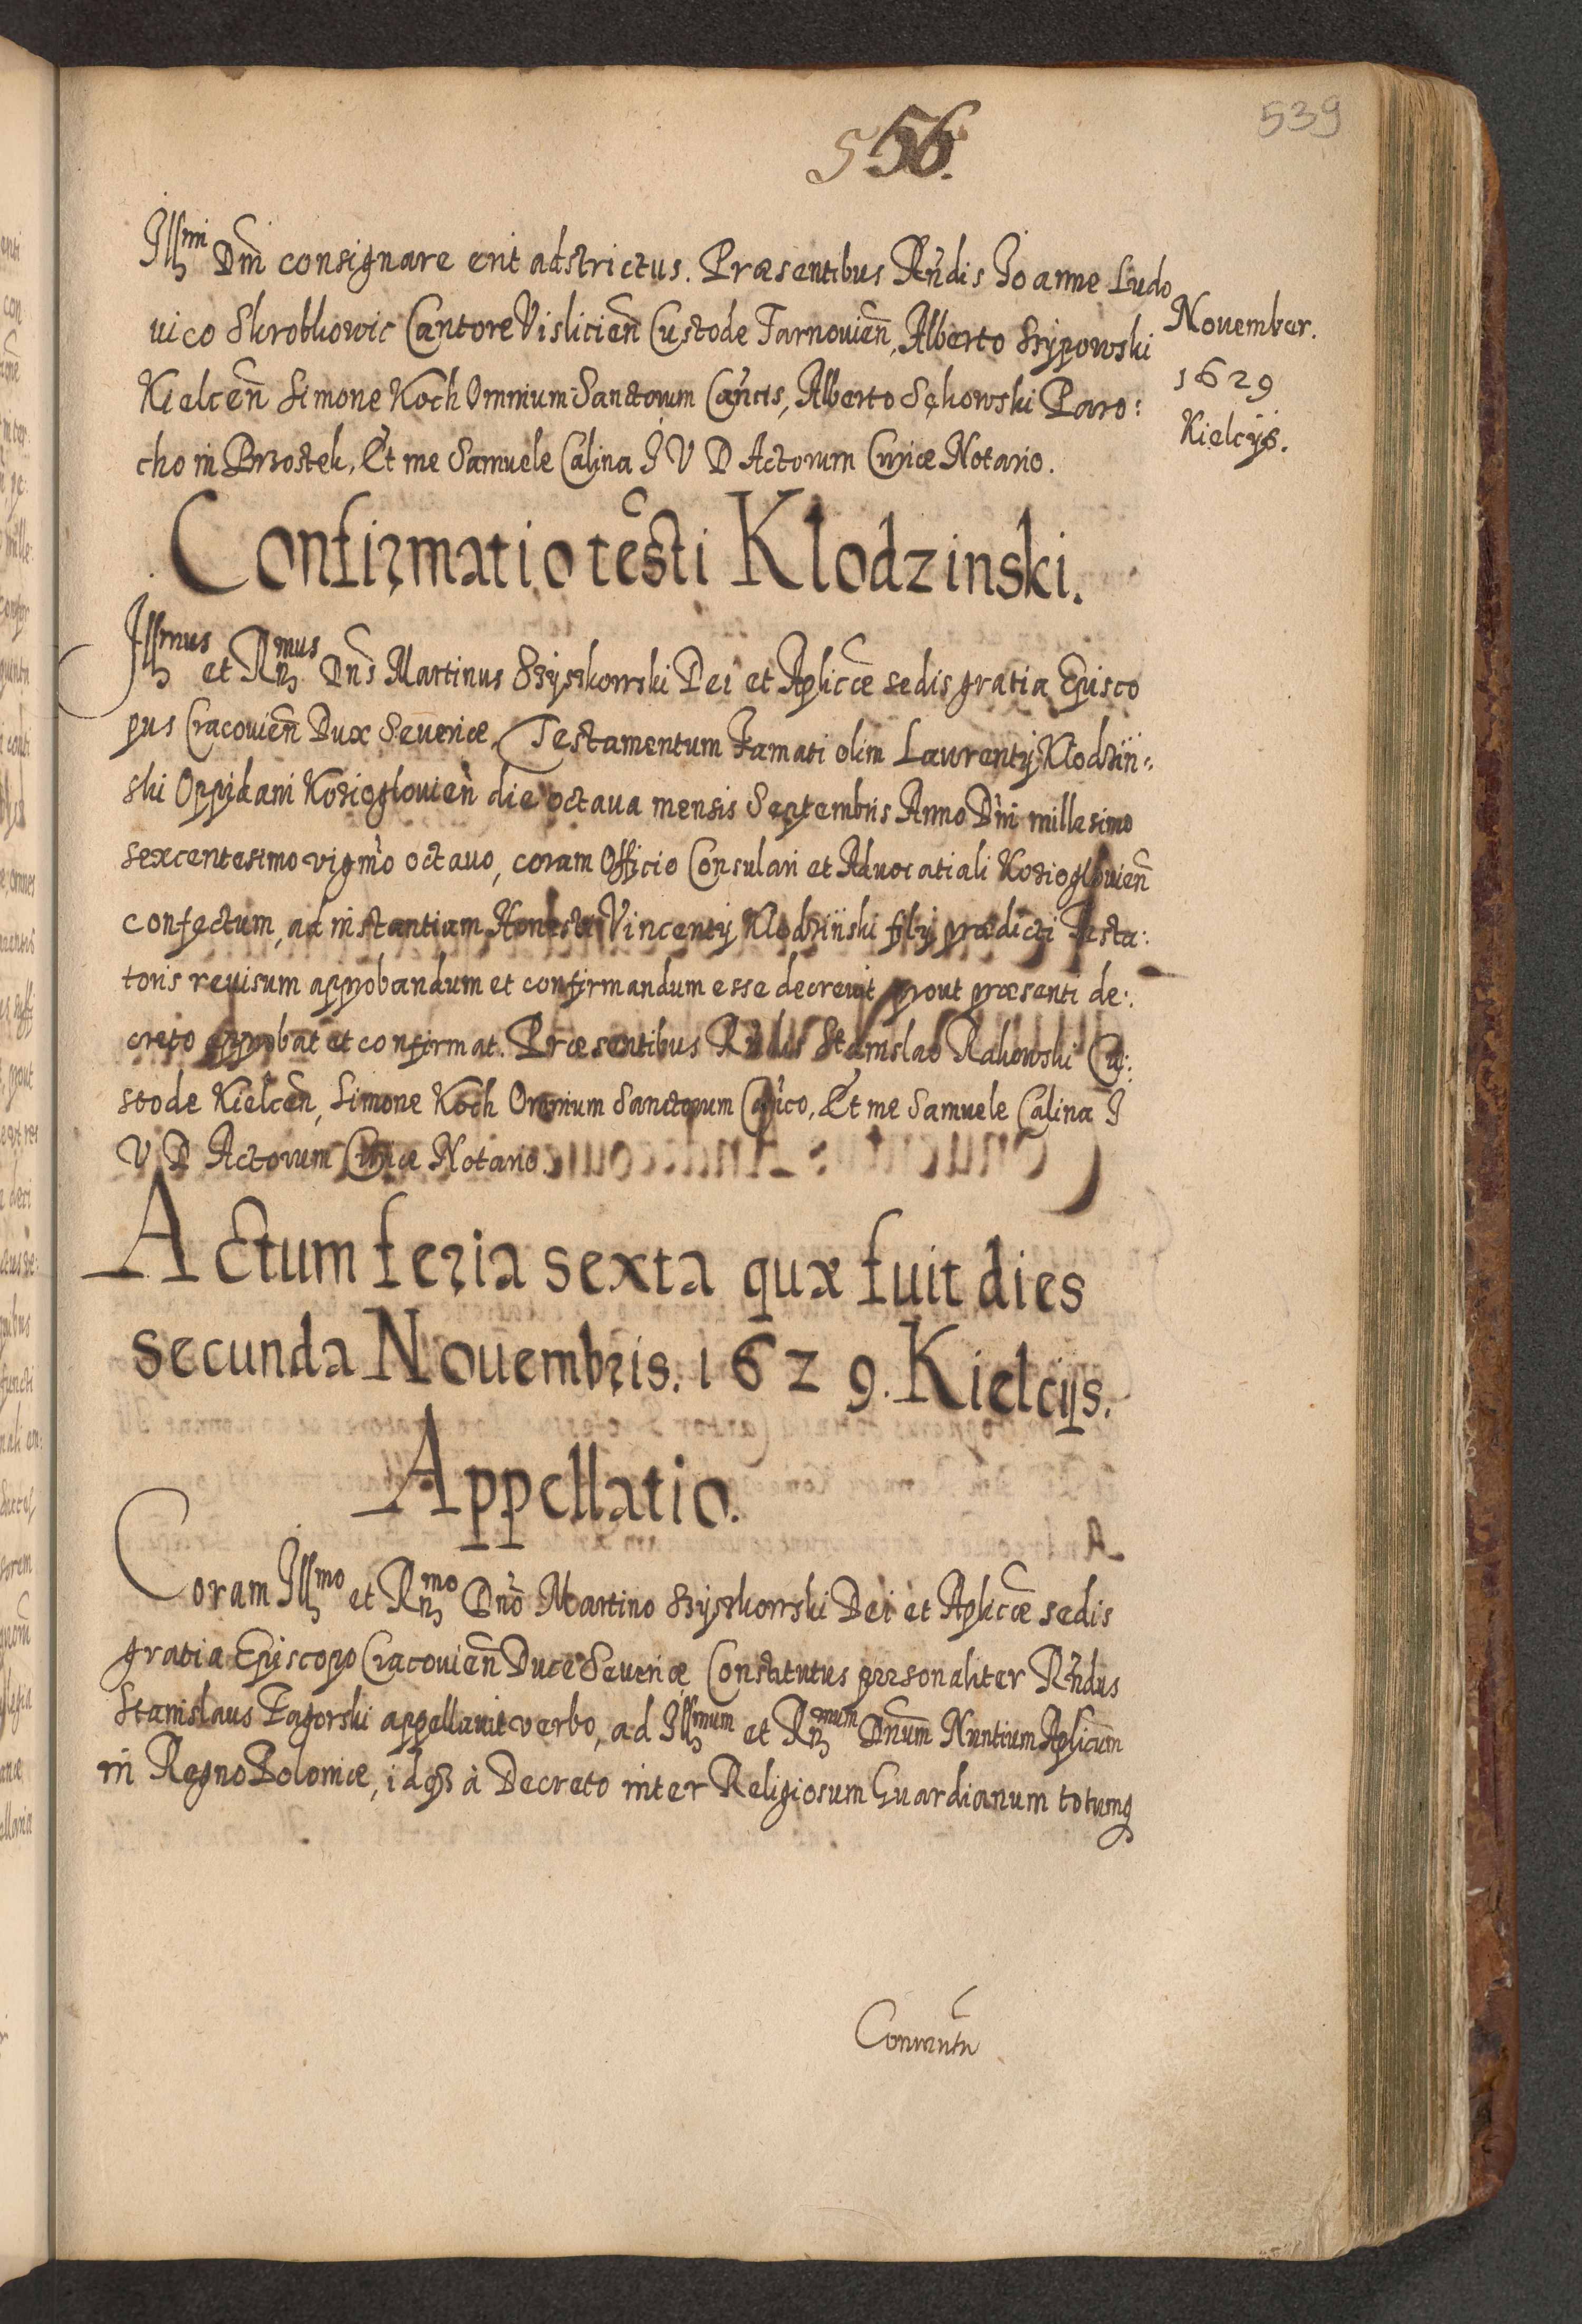 539
556.
Illmi Dni consignare erit adstrictus. Præsentibus Rndis Joanne Ludo
uico Skrobkowic Cantore Vislicien Custode Tarnouien, Alberto Szypowski
Kielcen Simone Koch Omnium Sanctorum Cancis, Alberto Sękowski Paro:
cho in Brzostek, Et me Samuele Calina J V D Actorum Curiæ Notario.
November.
1629
Kielcijs.
Confirmatio testi Klodzinski.
Illmus et Rndmus Dns Martinus Szyszkowski Dei et Aplicæ sedis gratia Episco
pus Cracouien Dux Seueriæ. Testamentum Famati olim Laurentij Klodziń:
ski Oppidani Kozieglouien die octaua mensis Septembris Anno Dni millesimo
sexcentesimo vigmo octauo, coram Officio Consulari et Aduocatiali Kozieglouien
confectum, ad instantiam Honesti Vincentij Klodziński filij prædicti Testa:
toris reuisum approbandum et confirmandum esse decreuit prout præsenti de:
creto approbat et confirmat. Præsentibus Rndis Stanislao Rakowski Cu:
stode Kielcen, Simone Koch Omnium Sanctorum Canco, Et me Samuele Calina J
V D Actorum Curiæ Notario.
Actum feria sexta quæ fuit dies
secunda Nouembris. 1629. Kielcijs.
Appellatio.
Coram Illmo et Rndmo Dno Martino Szyszkowski Dei et Aplicæ sedis
gratia Episcopo Cracouien Duce Seueriæ Constitutus personaliter Rndus
Stanislaus Zagorski appellauit verbo, ad Illmum et Rndmum Dnum Nuntium Aplicum
in Regno Poloniæ, idq3 à Decreto inter Religiosum Guardianum totumq
Conuentu